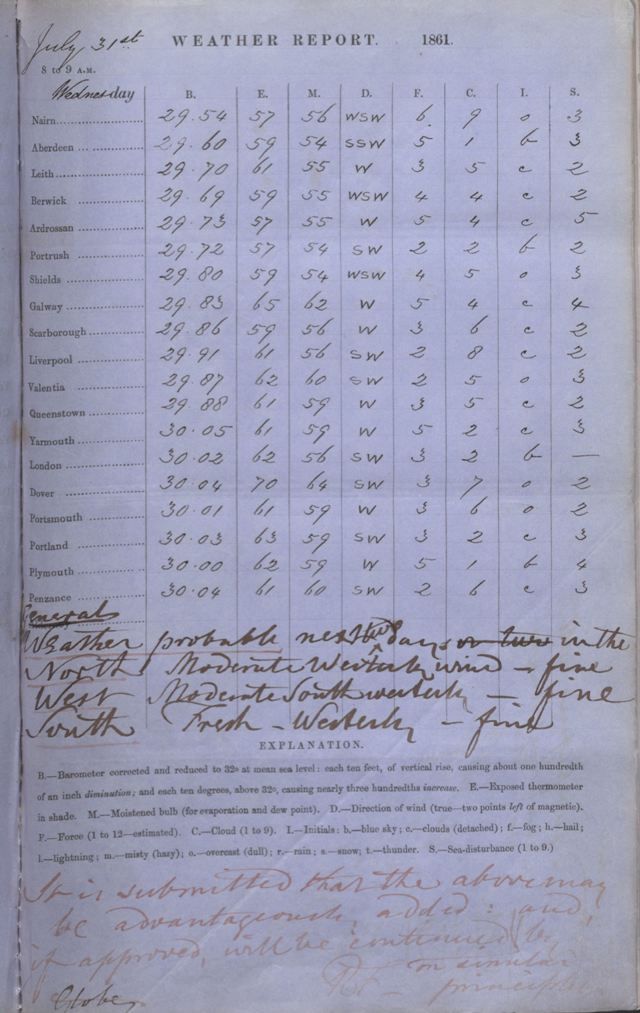 July 31st WEATHER REPORT. 1861.
8 to 9 A.M.
Wednesday B. E. M. D. F. C. I. S.
Nairn 29.54 57 56 WSW 6 9 o 3
Aberdeen 29.60 59 54 SSW 5 1 b 3
Leith 29.70 61 55 W 3 5 c 2
Berwick 29.69 59 55 WSW 4 4 c 2
Ardrossan 29.73 57 55 W 5 4 c 5
Portrush 29.72 57 54 SW 2 2 b 2
Shields 29.80 59 54 WSW 4 5 o 3
Galway 29.83 65 62 W 5 4 c 4
Scarborough 29.86 59 56 W 3 6 c 2
Liverpool 29.91 61 56 SW 2 8 c 2
Valentia 29.87 62 60 SW 2 5 o 3
Queenstown 29.88 61 59 W 3 5 c 2
Yarmouth 30.05 61 59 W 5 2 c 3
London 30.02 62 56 SW 3 2 b —
Dover 30.04 70 64 SW 3 7 o 2
Portsmouth 30.01 61 59 W 3 6 o 2
Portland 30.03 63 59 SW 3 2 c 3
Plymouth 30.00 62 59 W 5 1 b 4
Penzance 30.04 61 60 SW 2 6 c 3
General
Weather probable next two days or two in the
North Moderate Westerly wind – fine
West Moderate South westerly – fine
South Fresh – Westerly – fine
EXPLANATION.
B.—Barometer corrected and reduced to 32° at mean sea level: each ten feet, of vertical rise, causing about one hundredth
of an inch diminution; and each ten degrees, above 32°, causing nearly three hundredths increase. E.—Exposed thermometer
in shade. M.—Moistened bulb (for evaporation and dew point). D.—Direction of wind (true—two points left of magnetic).
F.—Force (1 to 12—estimated). C.—Cloud (1 to 9). I.—Initials: b.—blue sky; c.—clouds (detached); f.—fog; h.—hail;
l.—lightning; m.—misty (hazy); o.—overcast (dull); r.—rain; s.—snow; t.—thunder. S.—Sea-disturbance (1 to 9.)
It is submitted that the above may
be advantageously added: and,
if approved, will be continued by
RF – on similar
principles
Globe